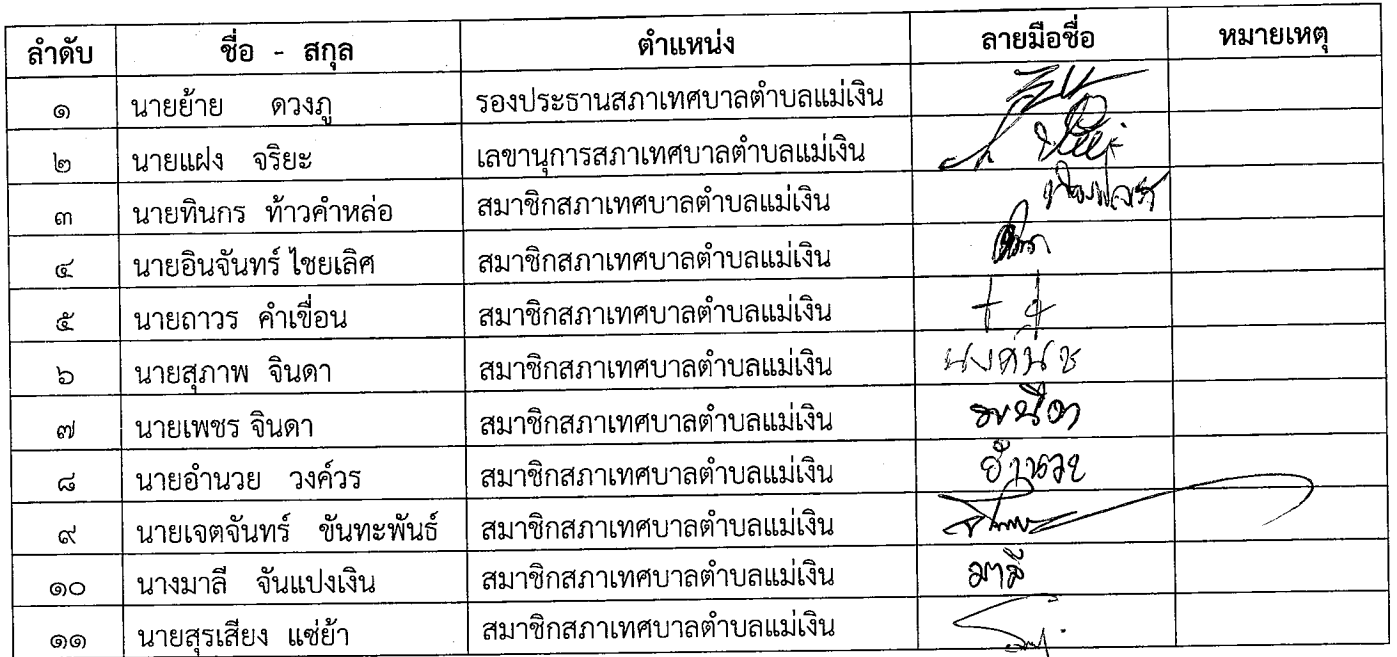 ลำดับ ชื่อ - สกุล ตำแหน่ง ลายมือชื่อ หมายเหตุ
๑ นายย้าย ดวงภู รองประธานสภาเทศบาลตำบลแม่เงิน
๒ นายแฝง จริยะ เลขานุการสภาเทศบาลตำบลแม่เงิน
๓ นายทินกร ท้าวคำหล่อ สมาชิกสภาเทศบาลตำบลแม่เงิน
๔ นายอินจันทร์ ไชยเลิศ สมาชิกสภาเทศบาลตำบลแม่เงิน
๕ นายถาวร คำเขื่อน สมาชิกสภาเทศบาลตำบลแม่เงิน
๖ นายสุภาพ จินดา สมาชิกสภาเทศบาลตำบลแม่เงิน
๗ นายเพชร จินดา สมาชิกสภาเทศบาลตำบลแม่เงิน
๘ นายอำนวย วงค์วร สมาชิกสภาเทศบาลตำบลแม่เงิน อำนวย
๙ นายเจตจันทร์ ขันทะพันธ์ สมาชิกสภาเทศบาลตำบลแม่เงิน
๑๐ นางมาลี จันแปงเงิน สมาชิกสภาเทศบาลตำบลแม่เงิน มาลี
๑๑ นายสุรเสียง แซ่ย้า สมาชิกสภาเทศบาลตำบลแม่เงิน